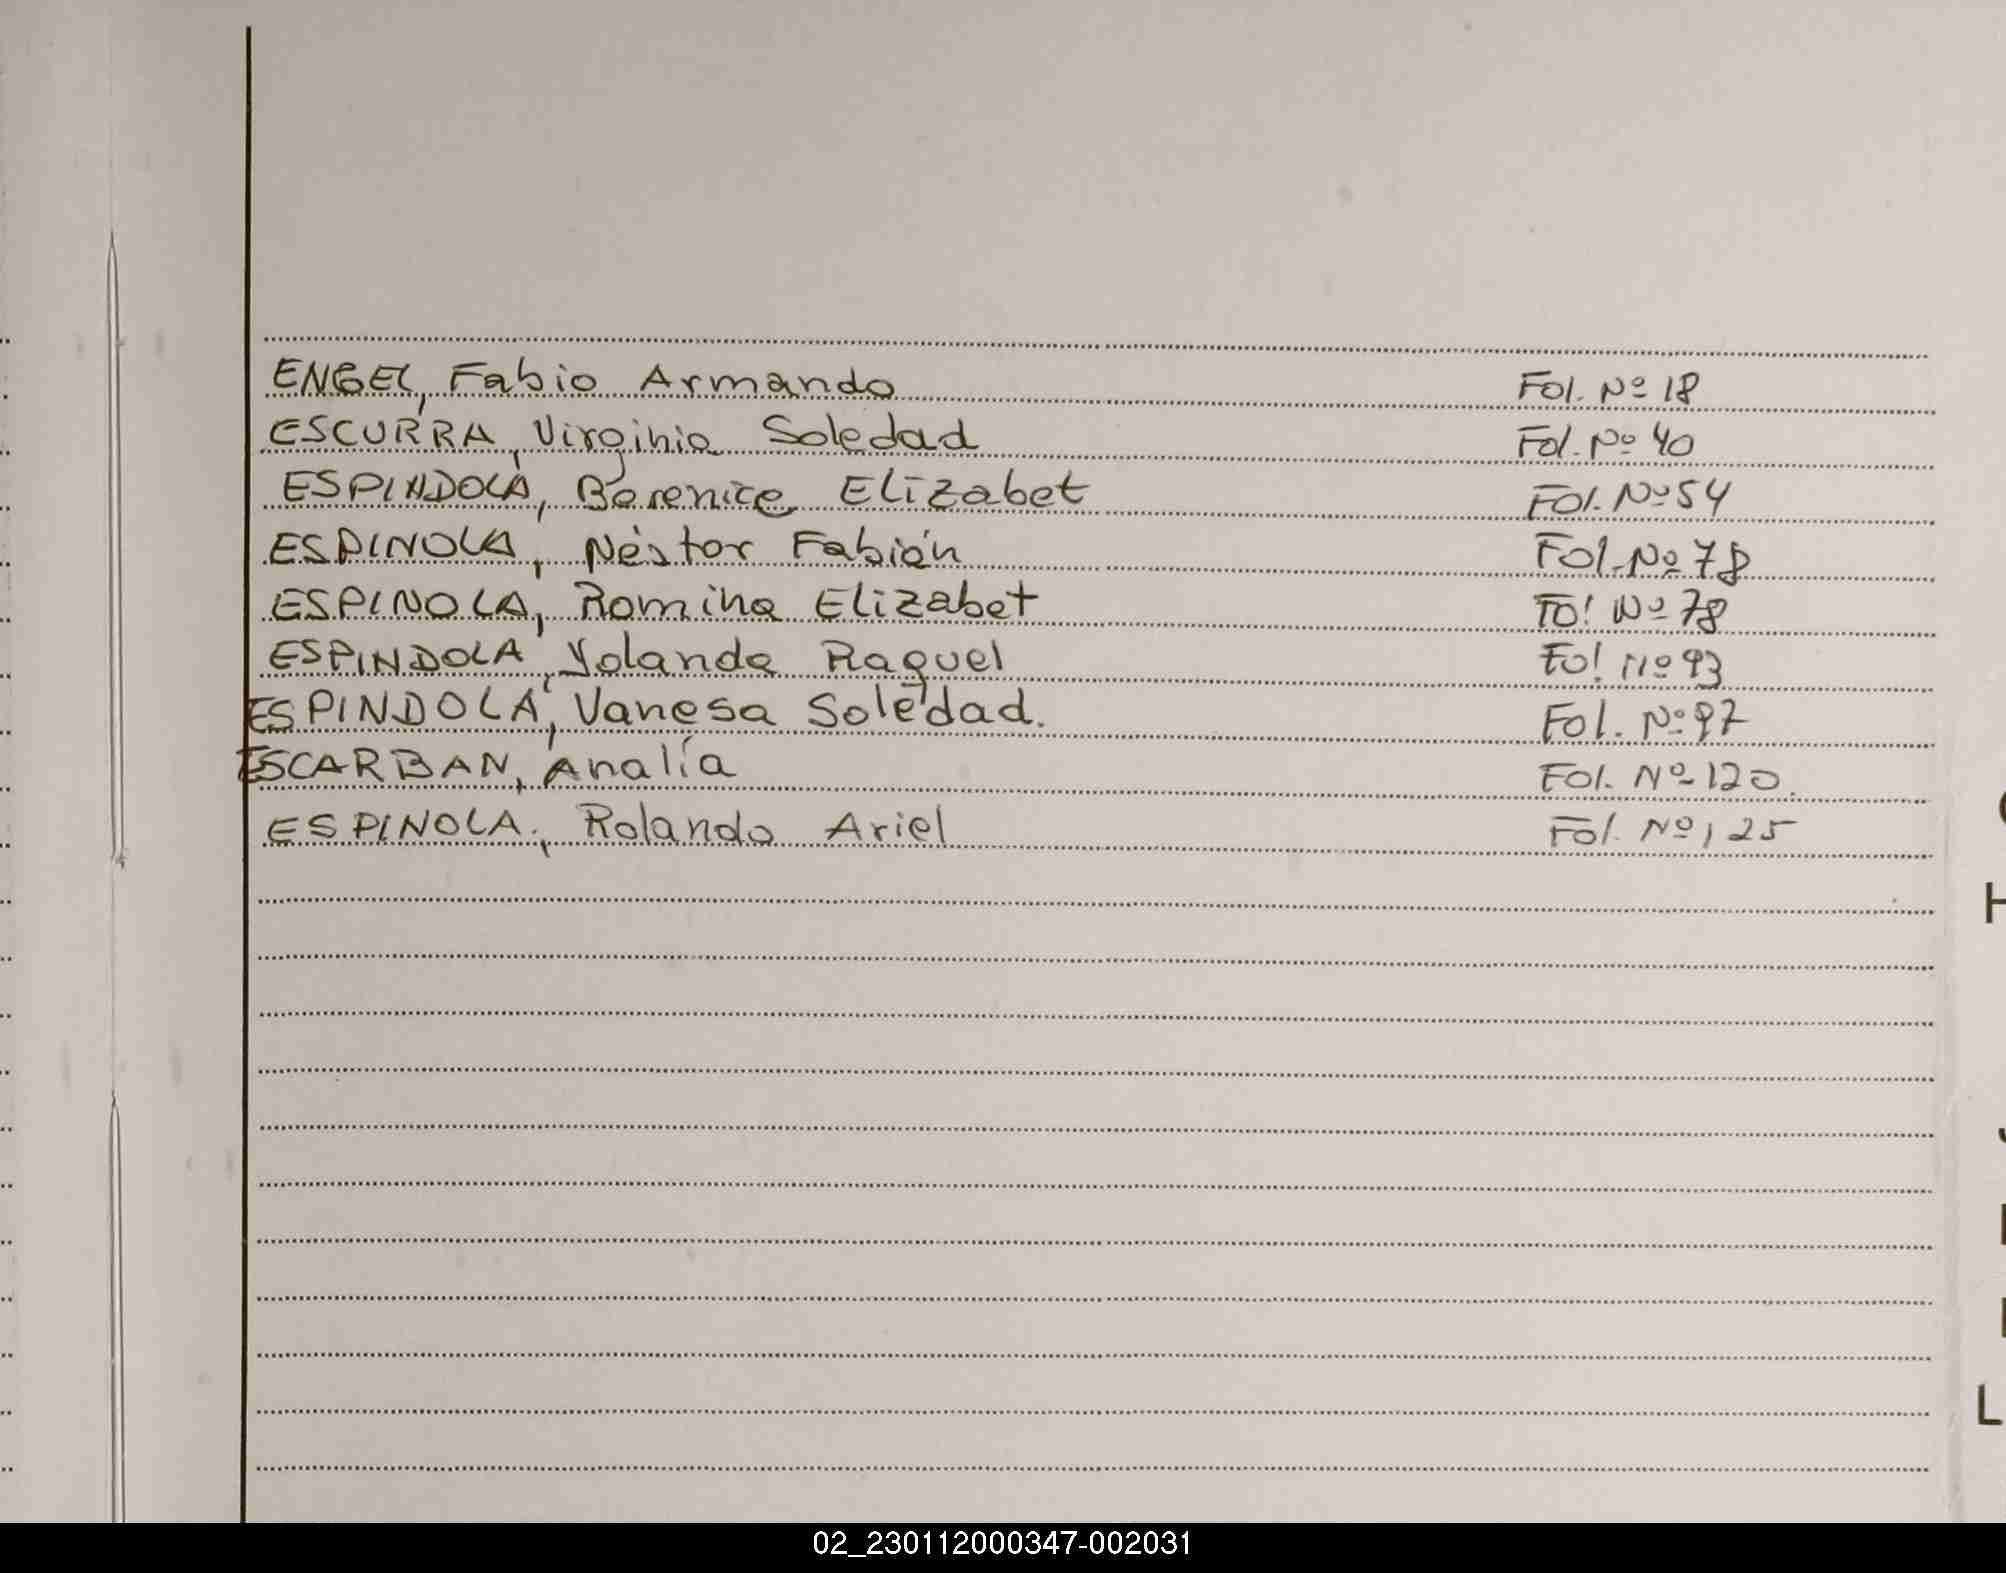 ENGEL, Fabio Armando Fol. Nº 18
ESCURRA, Virginia Soledad Fol. Nº 40
ESPINDOLA, Berenice Elizabet Fol. Nº 54
ESPINOLA, Néstor Fabián Fol. Nº 78
ESPINOLA, Romina Elizabet Fol Nº 78
ESPINDOLA, Yolanda Raquel Fol Nº 93
ESPINDOLA, Vanesa Soledad. Fol. Nº 97
ESCARBAN, Analía Fol. Nº 120.
ESPINOLA, Rolando Ariel Fol. Nº 125
H
L
02_230112000347-002031